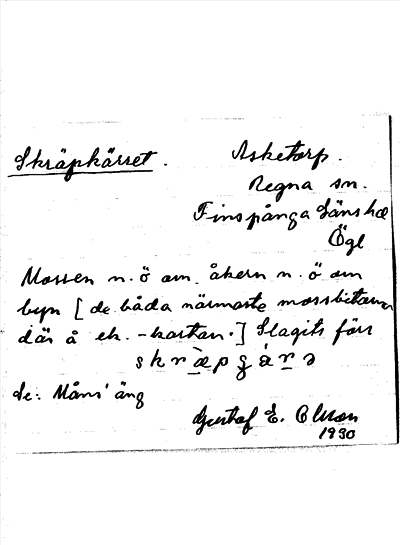 Skräpkärret. Asketorp.
Regna sn.
Finspånga läns hd
Ögl
Mossen n.ö om åkern n.ö om
byn [de båda närmaste mossbitarna
där å ek. -kartan.] Slagits förr
de: Måns' äng
Gustaf E. Olsson
1930